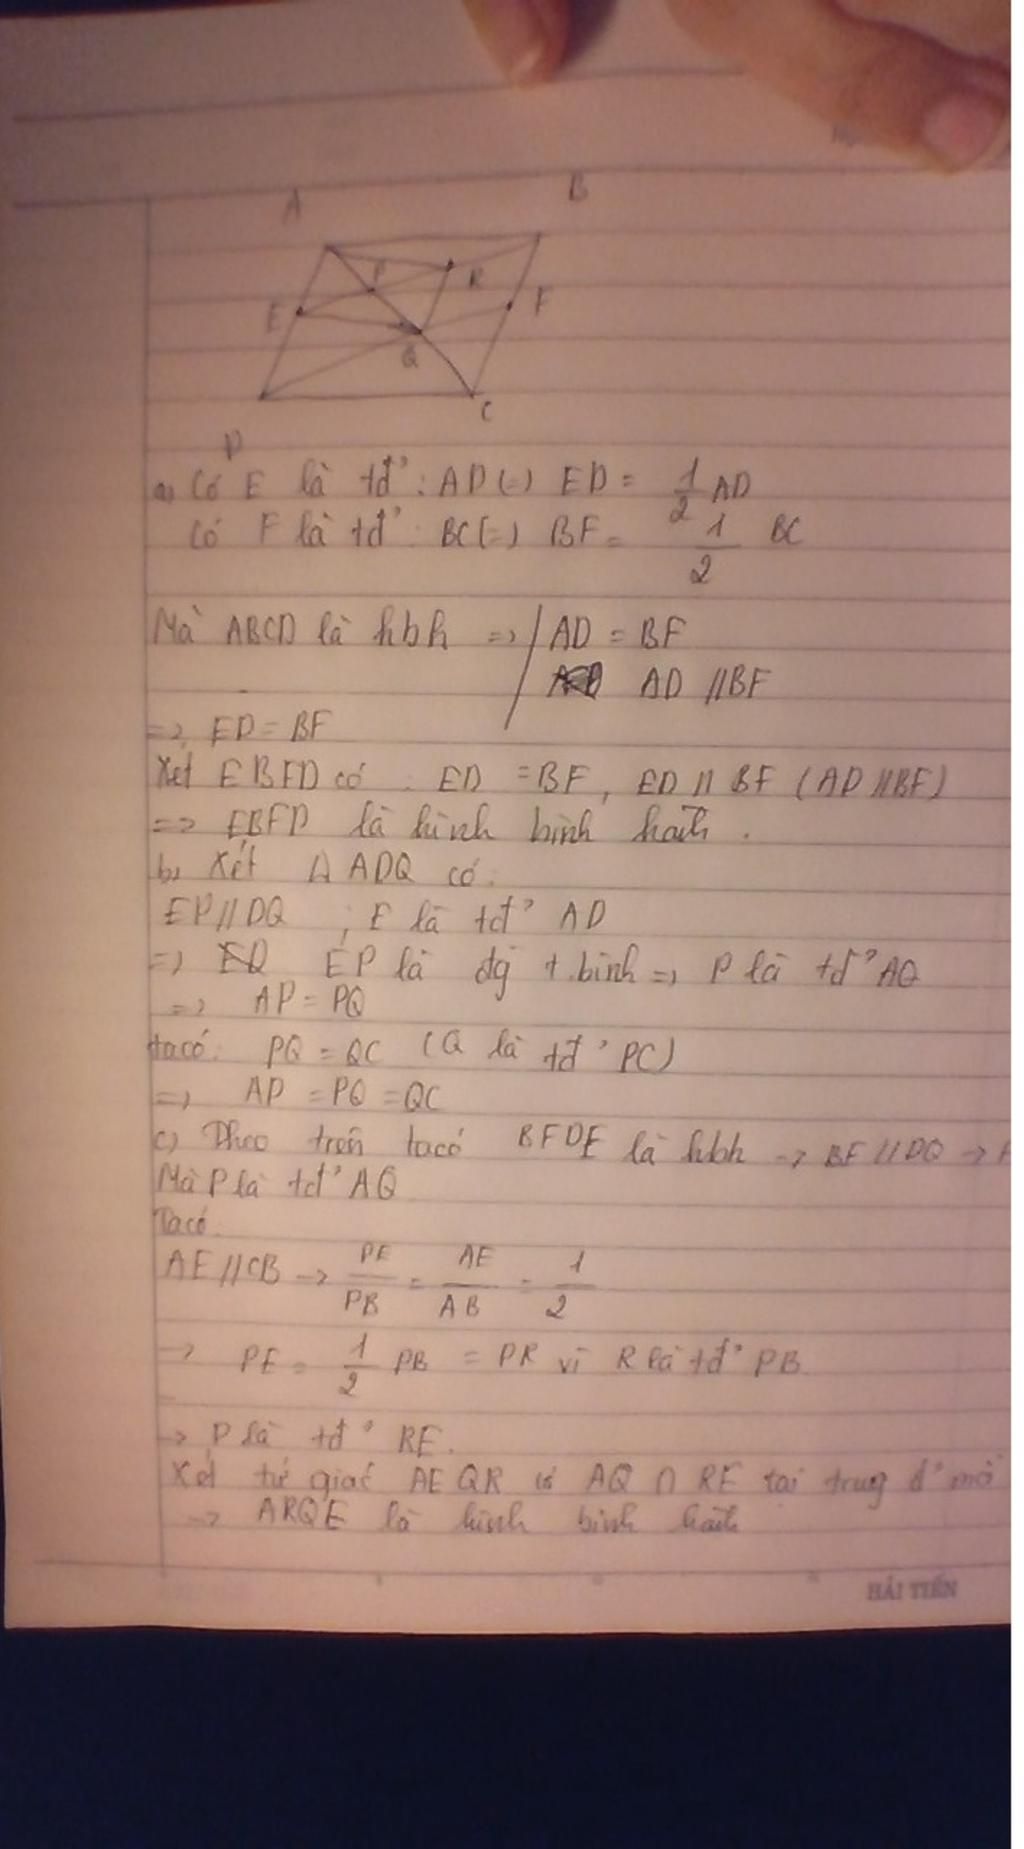 A B
P R
E F
Q
C
D
a) Có E là tđ' : AD (=) ED = 1/2 AD
Có F là tđ' : BC (=) BF = 1/2 BC
Mà ABCD là hbh => AD = BF
AD // BF
=> ED = BF
Xét EBFD có : ED = BF, ED // BF (AD // BF)
=> EBFD là hình bình hành.
b) Xét Δ ADQ có:
EP // DQ ; E là tđ' AD
=> EP là đg t.bình => P là tđ' AQ
=> AP = PQ
ta có: PQ = QC (Q là tđ' PC)
=> AP = PQ = QC
c) Theo trên ta có BFDE là hbh -> BE // DQ ->
Mà P là tđ' AQ
Ta có:
AE // CB -> PE/PB = AE/AB = 1/2
-> PE = 1/2 PB = PR vì R là tđ' PB
-> P là tđ' RE.
Xét tứ giác AEQR có AQ ∩ RE tại trung đ' mỗi
-> ARQE là hình bình hành
HẢI TIẾN